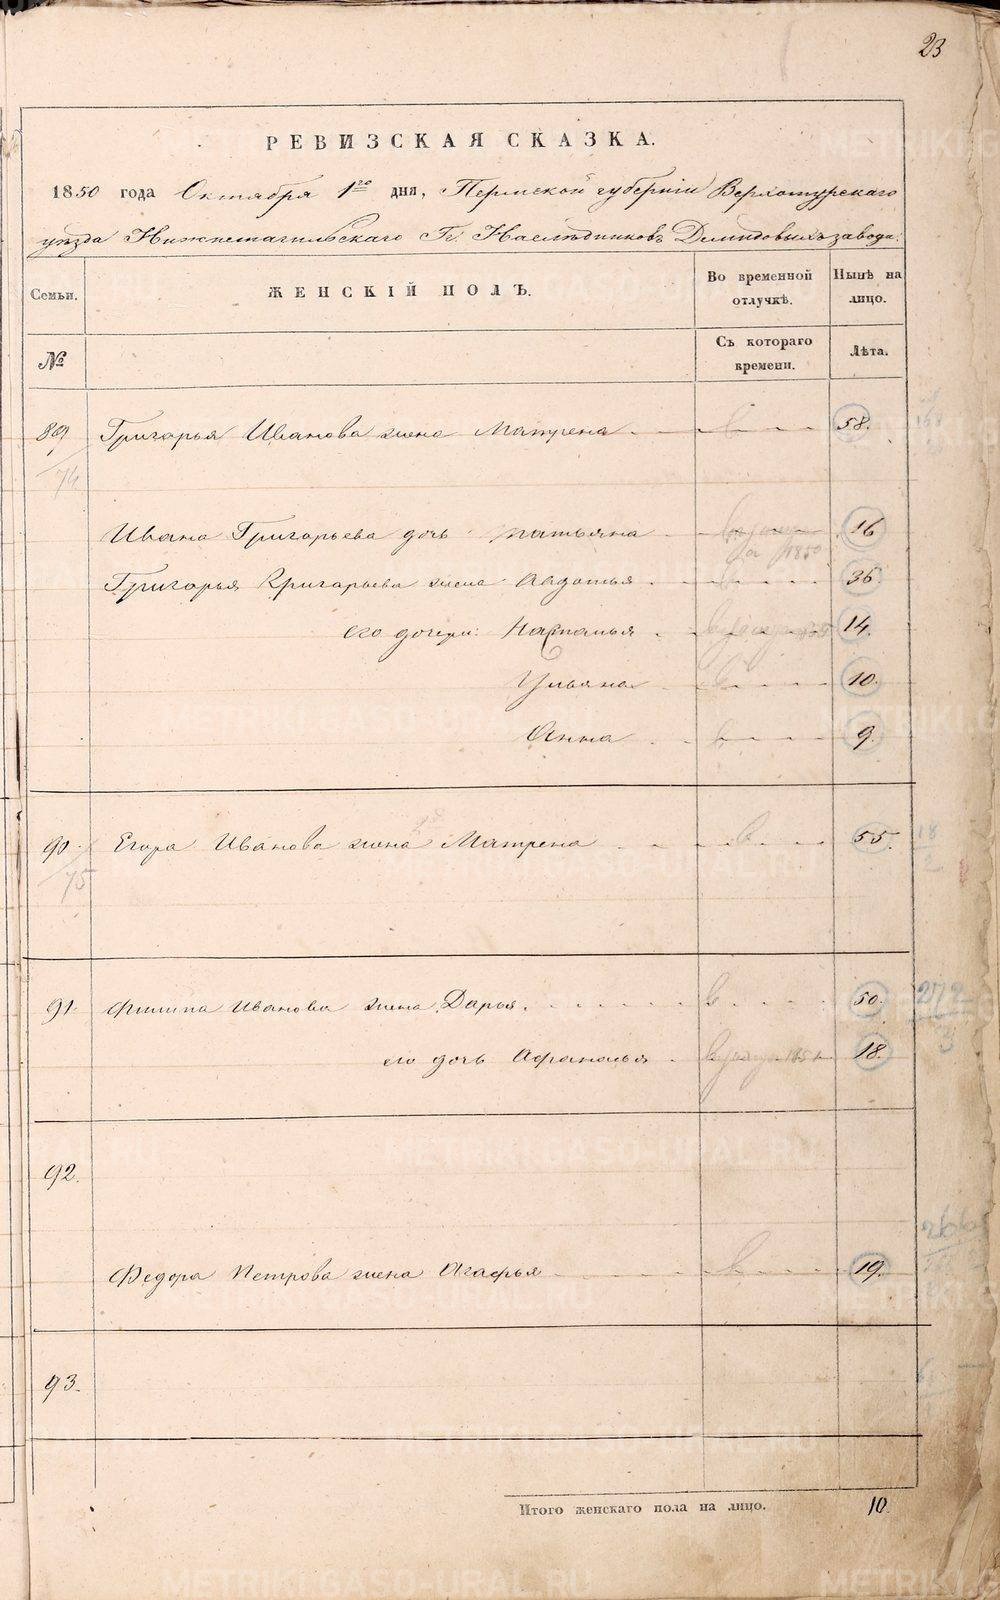 23
РЕВИЗСКАЯ СКАЗКА.
1850 года Октября 1го дня, Пермской губернiи Верхотурскаго
уѣзда Нижнетагильскаго Гг. Наслѣдниковъ Демидовыхъ завода.
Семьи.
ЖЕНСКIЙ ПОЛЪ.
Во временной отлучкѣ.
Нынѣ на лицо.
№
Съ котораго времени.
Лѣта.
89 Григорья Иванова жена Матрена 58.
74
Ивана Григорьева дочь Татьяна 16
1850
Григорья Григорьева жена Авдотья 36.
его дочери: Наталья 14.
Ульяна 10.
Анна 9.
90. Егора Иванова жена Матрена 55.
75
18
2
91. Филипа Иванова жена Дарья. 50.
272
его дочь Афанасья 18.
92.
Федора Петрова жена Агафья 19.
93.
Итого женскаго пола на лицо. 10.
METRIKI.GASO-URAL.RU